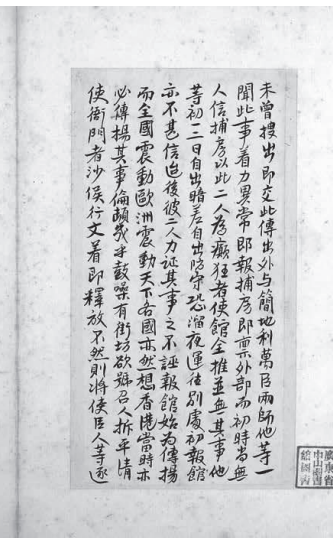 未曾搜出即交此傳出外与簡地利萬臣兩師他等一
聞此事着力異常即報捕房即稟外部而初時尚無
人信捕房以此二人為癲狂者使館全推並無其事他
等初一二日自出暗差自出防守恐溜夜運往別處初報館
亦不甚信迨後彼二人力証其事之不誣報館始為傳揚
而全國震動歐洲震動天下各國亦然想香港當時亦
必傳揚其事倫頓幾乎鼓噪有街坊欲號召人拆平清
使衙門者沙侯行文着即釋放不然則將使臣人等逐
廣東省
中山圖書
館圖書